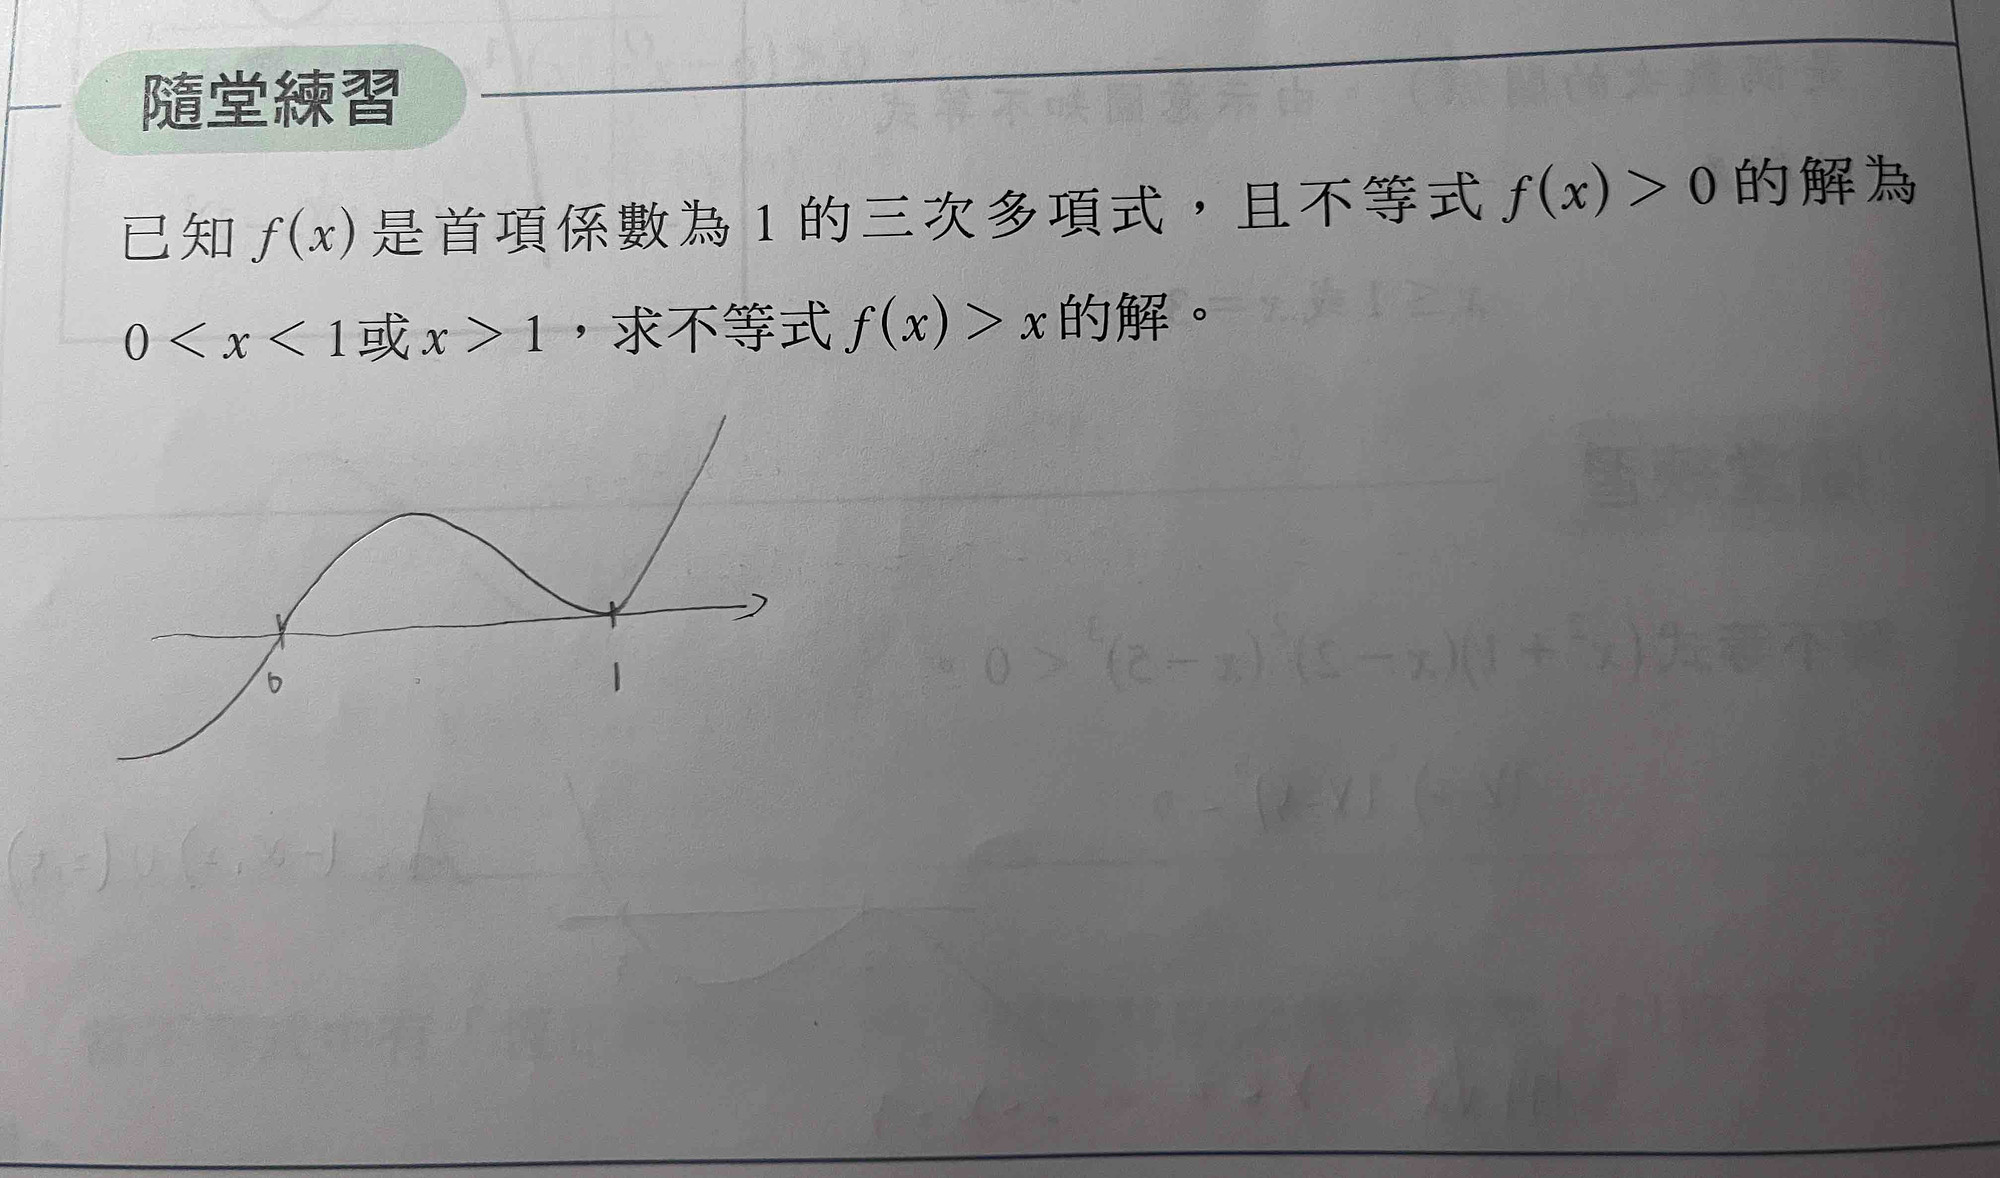 隨堂練習
已知 f(x) 是首項係數為 1 的三次多項式，且不等式 f(x) > 0 的解為
0 < x < 1 或 x > 1，求不等式 f(x) > x 的解。
0 1